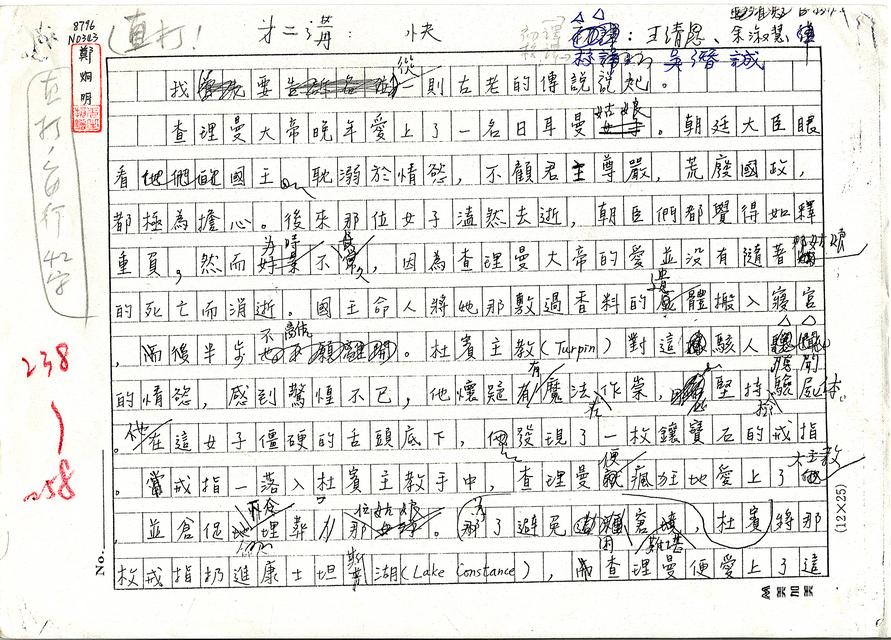 8796
NO343
直打!
第二講: 快
初譯: 王靖恩、余淑慧
校譯: 吳潛誠
鄭炯明
直打,每行42字
我要從一則古老的傳說說起。
查理曼大帝晚年愛上了一名日耳曼姑娘。朝廷大臣眼
看國王耽溺於情慾,不顧君主尊嚴,荒廢國政,
都極為擔心。後來那位女子溘然去逝,朝臣們都覺得如釋
重負,然而好景不常,因為查理曼大帝的愛並沒有隨著那姑娘
的死亡而消逝。國王命人將她那敷過香料的遺體搬入寢宮
,而後半步不離。杜賓主教(Turpin)對這駭人
的情慾,感到驚惶不已,他懷疑有魔法作祟,堅持檢驗屍體。
他在這女子僵硬的舌頭底下,發現了一枚鑲寶石的戒指
。當戒指一落入杜賓主教手中,查理曼便瘋狂地愛上了大主教
,並倉促埋葬了那位姑娘。為了避免困窘,杜賓將那
枚戒指扔進康士坦斯湖(Lake Constance),查理曼便愛上了這
238
258
No.
(12×25)